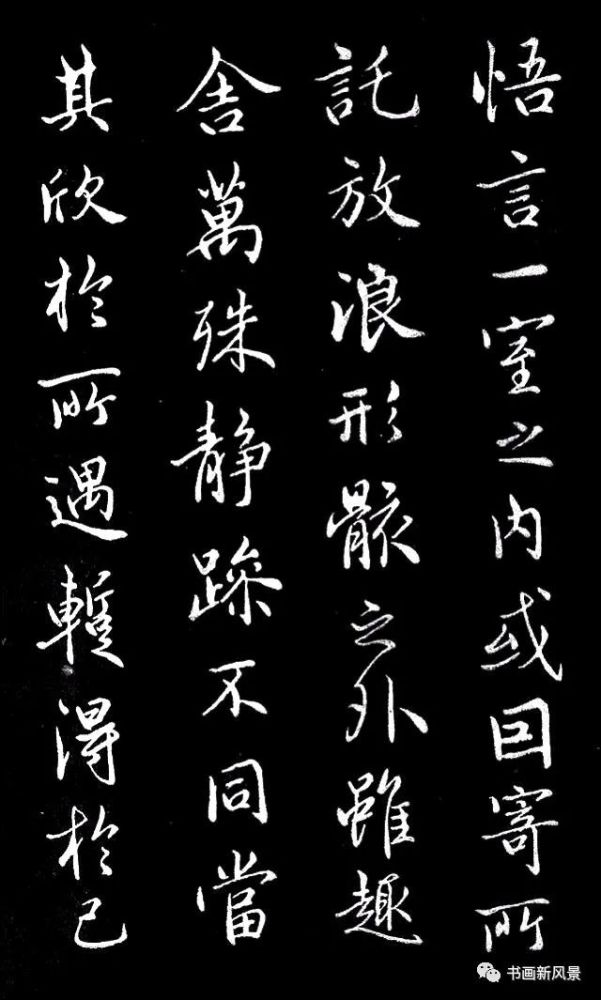 悟言一室之内或因寄所
託放浪形骸之外雖趣
舍萬殊静躁不同當
其欣於所遇蹔得於己
书画新风景